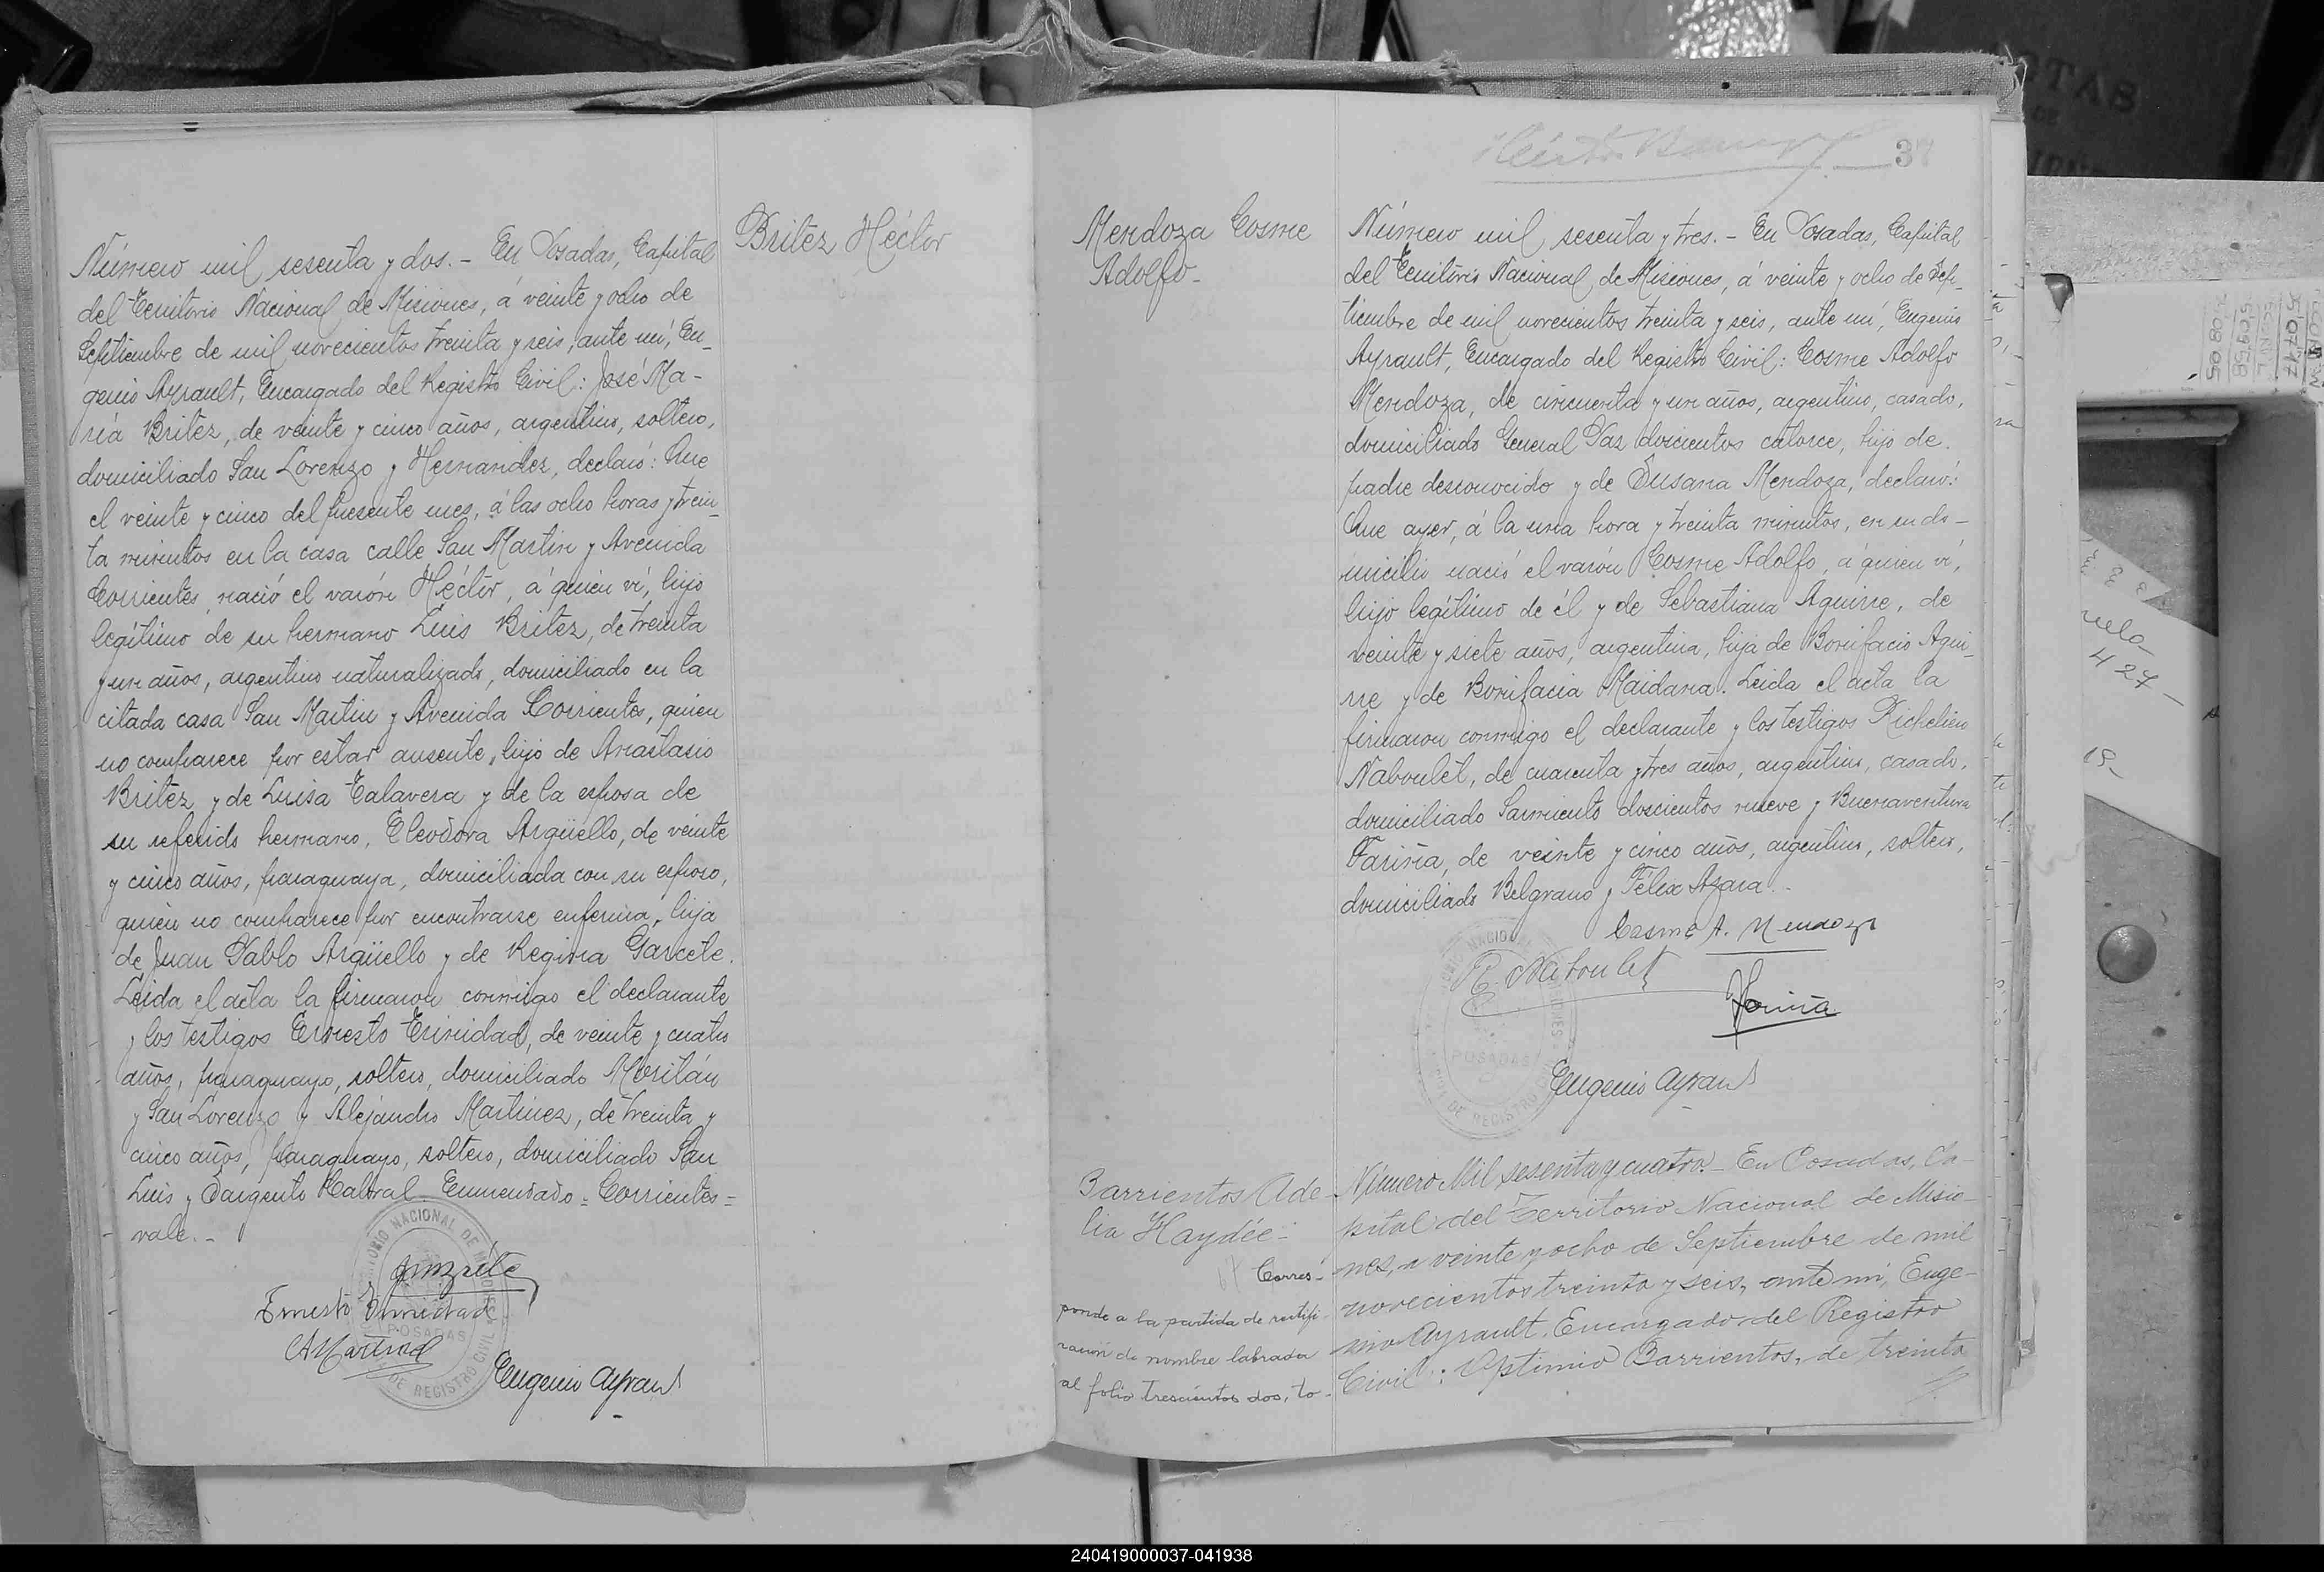 Británez Héctor
Número mil sesenta y dos. - En Posadas, Capital
del Territorio Nacional de Misiones, á veinte y ocho de
Septiembre de mil novecientos treinta y seis, ante mí, Eu_
genio Ayrault, Encargado del Registro Civil: José Ma-
ría Britez, de veinte y cinco años, argentino, soltero,
domiciliado San Lorenzo y Hernandez, declaró: Que
el veinte y cinco del presente mes, á las ocho horas y trein_
ta minutos en la casa calle San Martin y Avenida
Corrientes, nació el varón Héctor, á quien ví, hijo
legítimo de su hermano Luis Britez, de treinta
y un años, argentino naturalizado, domiciliado en la
citada casa San Martin y Avenida Corrientes, quien
no comparece por estar ausente, hijo de Anastasio
Britez y de Luisa Talavera y de la esposa de
su referido hermano, Eleodora Argüello, de veinte
y cinco años, paraguaya, domiciliada con su esposo,
quien no comparece por encontrarse enferma, hija
de Juan Pablo Argüello y de Regina Garcete.
Leida el acta la firmaron conmigo el declarante
y los testigos Ernesto Trinidad, de veinte y cuatro
años, paraguayo, soltero, domiciliado
y San Lorenzo y Alejandro Martinez, de treinta y
cinco años, paraguayo, soltero, domiciliado San
Luis y Sargento Cabral. Enmendado = Corrientes =
vale. -
Ernesto Trinidad
AMartinez
Eugenio Ayrault
37
Mendoza Cosme
Adolfo-
Número mil sesenta y tres. - En Posadas, Capital
del Territorio Nacional de Misiones, á veinte y ocho de Sep_
tiembre de mil novecientos treinta y seis, ante mí, Eugenio
Ayrault, Encargado del Registro Civil: Cosme Adolfo
Mendoza, de cincuenta y un años, argentino, casado,
domiciliado General Paz doscientos catorce, hijo de
padre desconocido y de Susana Mendoza, declaró:
Que ayer, á la una hora y treinta minutos, en su do-
micilio nació el varón Cosme Adolfo, á quien ví,
hijo legítimo de él y de Sebastiana Aguirre, de
veinte y siete años, argentina, hija de Bonifacio Agui_
rre y de Bonifacia Maidana. Leida el acta la
firmaron conmigo el declarante y los testigos Richelieu
Naboulet, de cuarenta y tres años, argentino, casado,
domiciliado Sarmiento doscientos nueve y Buenaventura
Fariña, de veinte y cinco años, argentino, soltero,
domiciliado Belgrano y Félix Azara. -
Cosme A. Mendoza
R. Naboulet
Fariña
Eugenio Ayrault
Barrientos Ade-
lia Haydée-
Corres-
ponde a la partida de rectifi-
cación de nombre labrada
al folio trescientos dos, to-
Número Mil sesenta y cuatro. - En Posadas, Ca-
pital del Territorio Nacional de Misio-
nes, a veinte y ocho de Septiembre de mil
novecientos treinta y seis, ante mí, Euge-
nio Ayrault, Encargado del Registro
Civil: Optimio Barrientos, de treinta
240419000037-041938